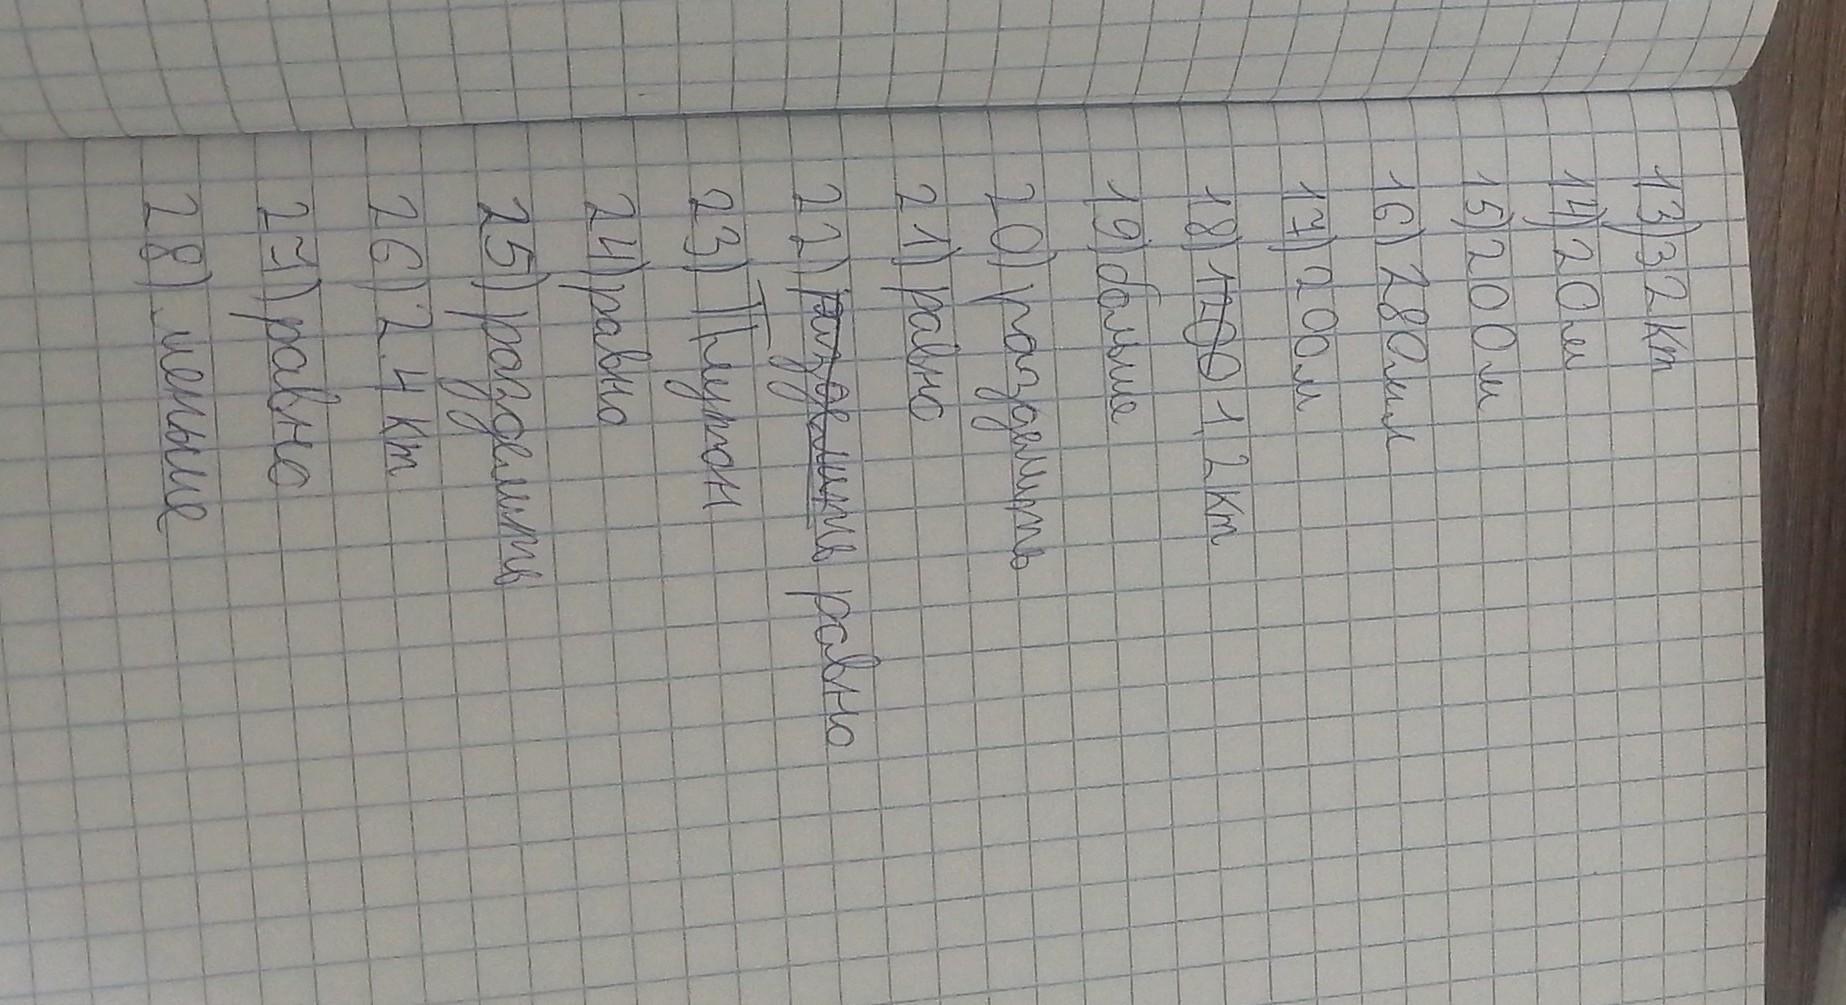 13) 32 Km
14) 20 м
15) 200 м
16) 280 мм
17) 200 м
18) 120 0 12 Km
19) больше
20) разделить
21) равно
22) разделить равно
23) Плутон
24) равно
25) разделить
26) 2.4 Km
27) равно
28) меньше